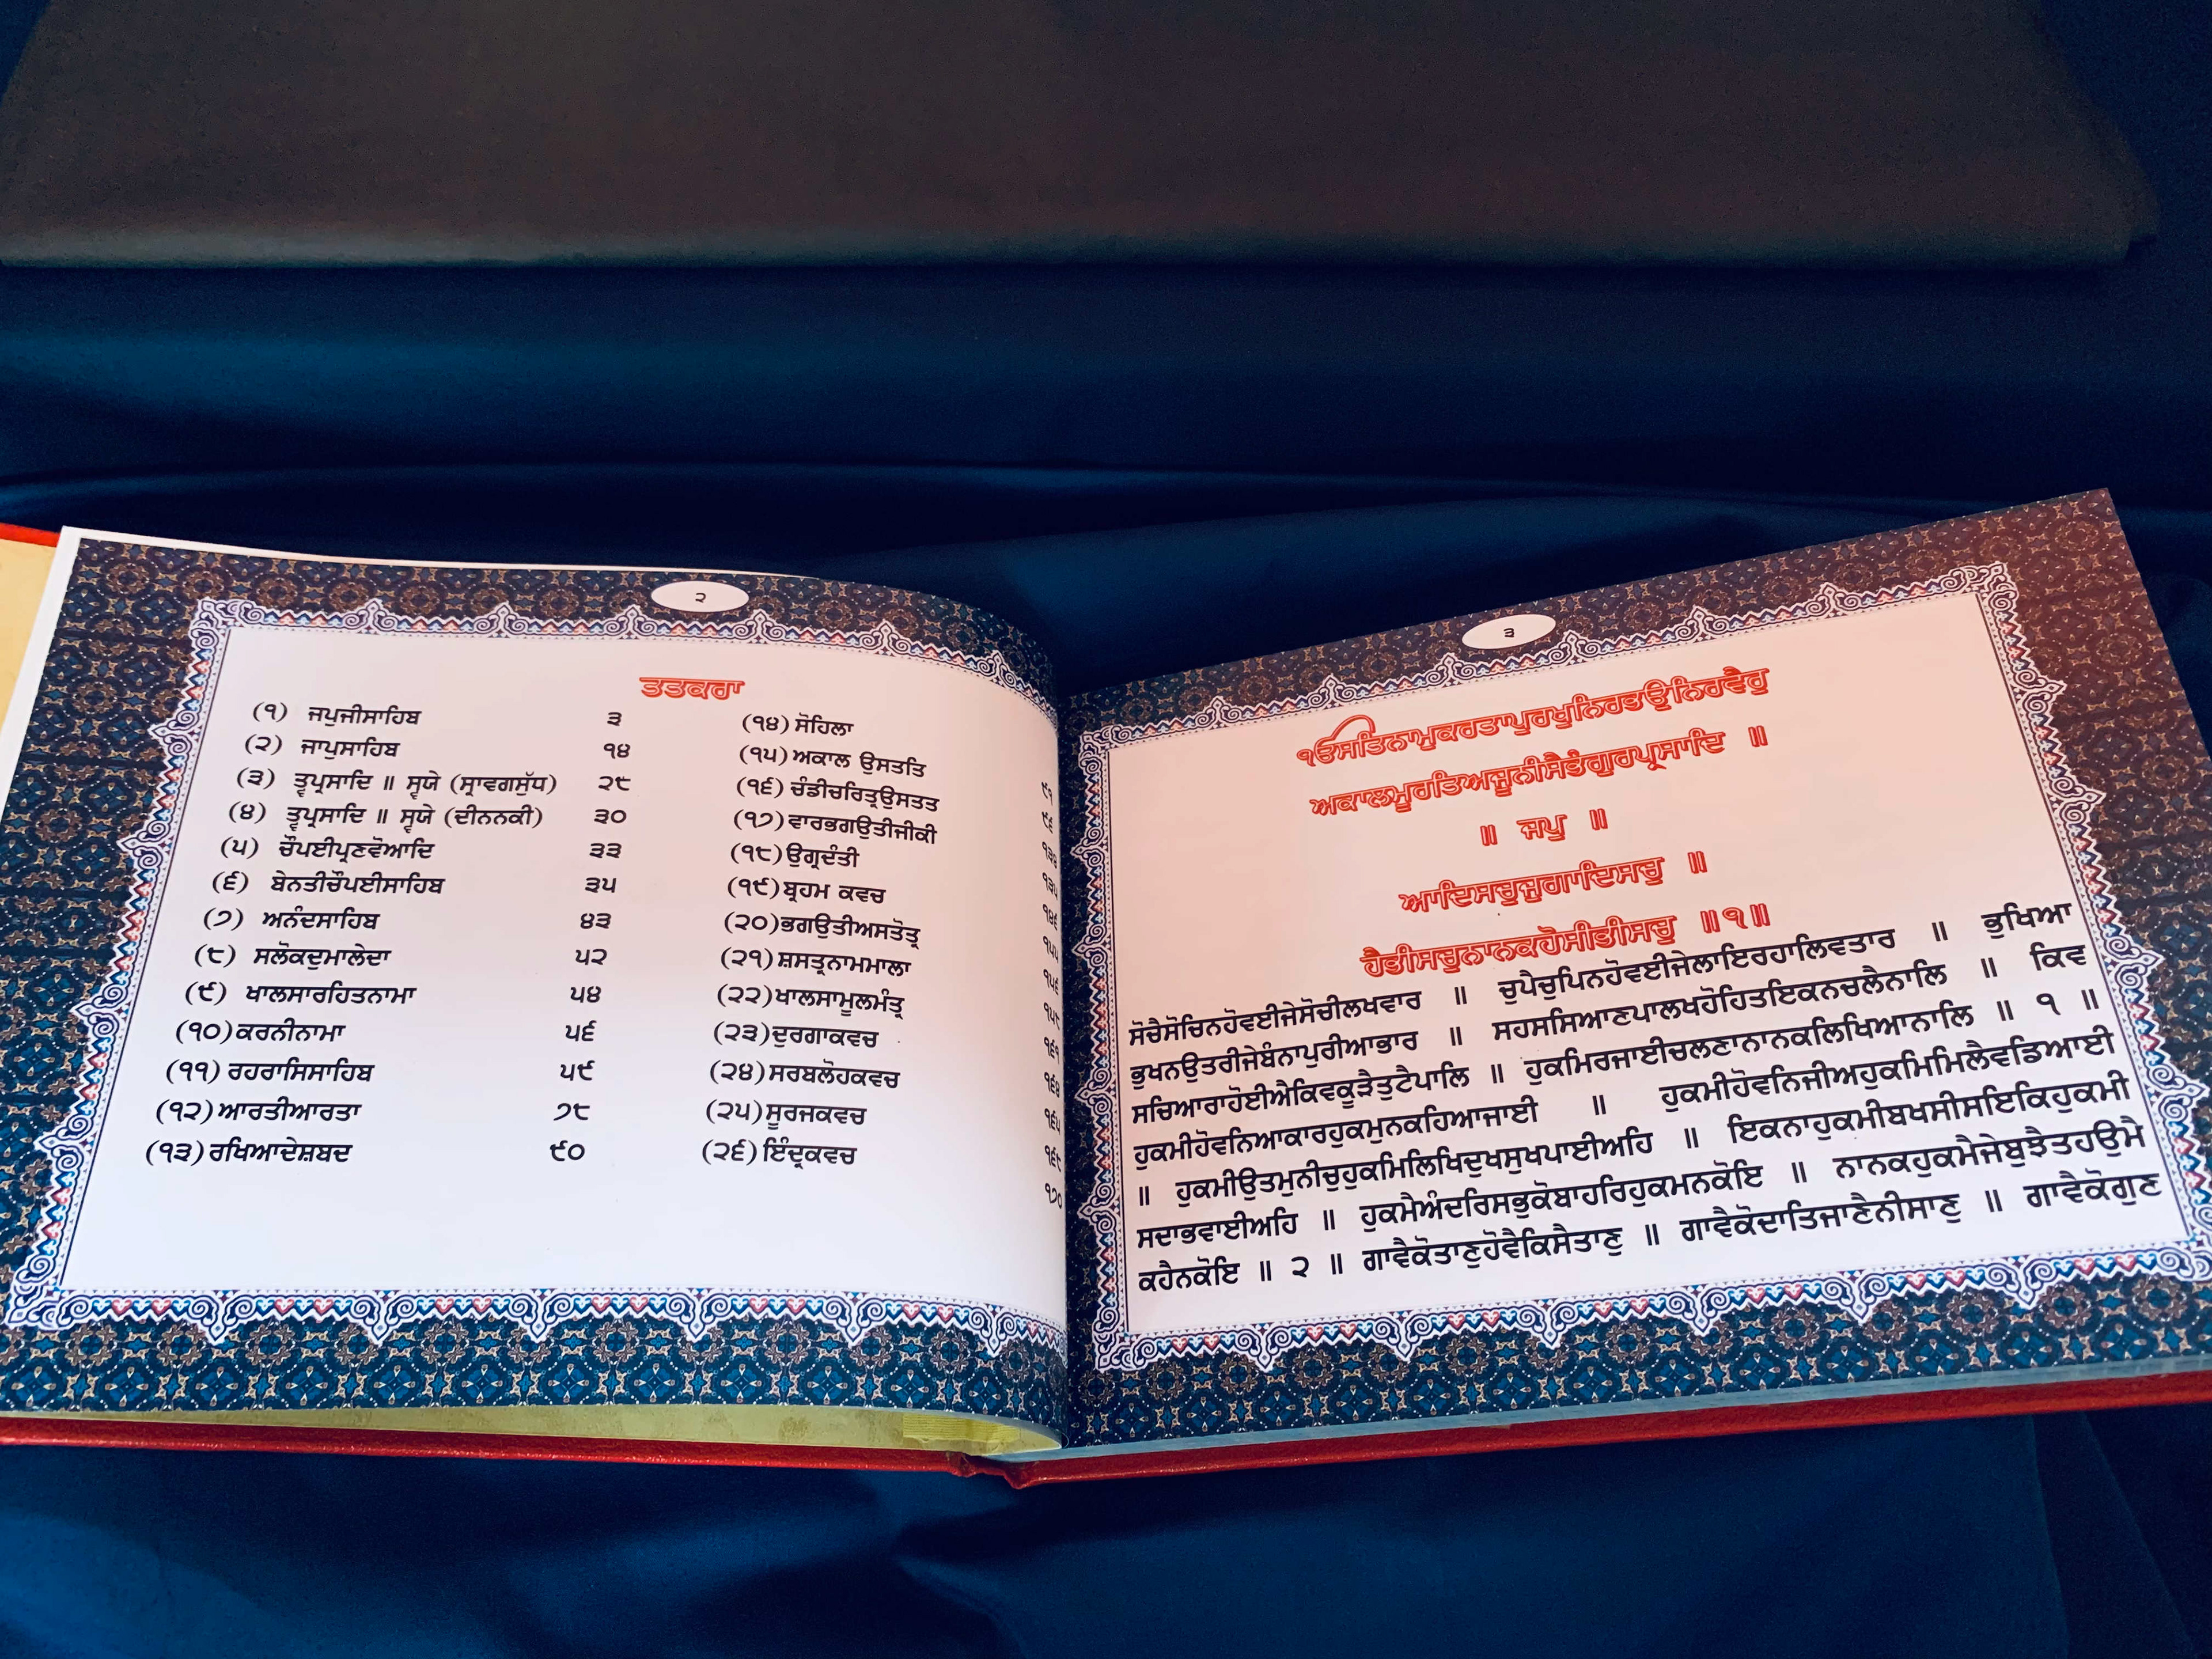 ੨
ਤਤਕਰਾ
(੧) ਜਪੁਜੀਸਾਹਿਬ ੩
(੨) ਜਾਪੁਸਾਹਿਬ ੧੪
(੩) ਤ੍ਵਪ੍ਰਸਾਦਿ ॥ ਸ੍ਵਯੇ (ਸ੍ਰਾਵਗਸੁੱਧ) ੨੮
(੪) ਤ੍ਵਪ੍ਰਸਾਦਿ ॥ ਸ੍ਵਯੇ (ਦੀਨਨਕੀ) ੩੦
(੫) ਚੌਪਈਪ੍ਰਣਵੋਆਦਿ ੩੩
(੬) ਬੇਨਤੀਚੌਪਈਸਾਹਿਬ ੩੫
(੭) ਅਨੰਦਸਾਹਿਬ ੪੩
(੮) ਸਲੋਕਦੁਮਾਲੇਦਾ ੫੨
(੯) ਖਾਲਸਾਰਹਿਤਨਾਮਾ ੫੪
(੧੦) ਕਰਨੀਨਾਮਾ ੫੬
(੧੧) ਰਹਰਾਸਿਸਾਹਿਬ ੫੯
(੧੨) ਆਰਤੀਆਰਤਾ ੭੮
(੧੩) ਰਖਿਆਦੇਸ਼ਬਦ ੯੦
(੧੪) ਸੋਹਿਲਾ ੯੧
(੧੫) ਅਕਾਲ ਉਸਤਤਿ ੯੬
(੧੬) ਚੰਡੀਚਰਿਤ੍ਰਉਸਤਤ
(੧੭) ਵਾਰਭਗਉਤੀਜੀਕੀ
(੧੮) ਉਗ੍ਰਦੰਤੀ
(੧੯) ਬ੍ਰਹਮ ਕਵਚ ੧੫੫
(੨੦) ਭਗਉਤੀਅਸਤੋਤ੍ਰ ੧੫੬
(੨੧) ਸ਼ਸਤ੍ਰਨਾਮਮਾਲਾ ੧੫੯
(੨੨) ਖਾਲਸਾਮੂਲਮੰਤ੍ਰ ੧੬੧
(੨੩) ਦੁਰਗਾਕਵਚ ੧੬੪
(੨੪) ਸਰਬਲੋਹਕਵਚ ੧੬੫
(੨੫) ਸੂਰਜਕਵਚ ੧੬੯
(੨੬) ਇੰਦ੍ਰਕਵਚ ੧੭੦
੩
ੴਸਤਿਨਾਮੁਕਰਤਾਪੁਰਖੁਨਿਰਭਉਨਿਰਵੈਰੁ
ਅਕਾਲਮੂਰਤਿਅਜੂਨੀਸੈਭੰਗੁਰਪ੍ਰਸਾਦਿ ॥
॥ ਜਪੁ ॥
ਆਦਿਸਚੁਜੁਗਾਦਿਸਚੁ ॥
ਹੈਭੀਸਚੁਨਾਨਕਹੋਸੀਭੀਸਚੁ ॥੧॥
ਸੋਚੈਸੋਚਿਨਹੋਵਈਜੇਸੋਚੀਲਖਵਾਰ ॥ ਚੁਪੈਚੁਪਿਨਹੋਵਈਜੇਲਾਇਰਹਾਲਿਵਤਾਰ ॥ ਭੁਖਿਆ
ਭੁਖਨਉਤਰੀਜੇਬੰਨਾਪੁਰੀਆਭਾਰ ॥ ਸਹਸਸਿਆਣਪਾਲਖਹੋਹਿਤਇਕਨਚਲੈਨਾਲਿ ॥ ਕਿਵ
ਸਚਿਆਰਾਹੋਈਐਕਿਵਕੂੜੈਤੁਟੈਪਾਲਿ ॥ ਹੁਕਮਿਰਜਾਈਚਲਣਾਨਾਨਕਲਿਖਿਆਨਾਲਿ ॥ ੧ ॥
ਹੁਕਮੀਹੋਵਨਿਆਕਾਰਹੁਕਮੁਨਕਹਿਆਜਾਈ ॥ ਹੁਕਮੀਹੋਵਨਿਜੀਅਹੁਕਮਿਮਿਲੈਵਡਿਆਈ
॥ ਹੁਕਮੀਉਤਮੁਨੀਚੁਹੁਕਮਿਲਿਖਿਦੁਖਸੁਖਪਾਈਅਹਿ ॥ ਇਕਨਾਹੁਕਮੀਬਖਸੀਸਇਕਿਹੁਕਮੀ
ਸਦਾਭਵਾਈਅਹਿ ॥ ਹੁਕਮੈਅੰਦਰਿਸਭੁਕੋਬਾਹਰਿਹੁਕਮਨਕੋਇ ॥ ਨਾਨਕਹੁਕਮੈਜੇਬੁਝੈਤਹਉਮੈ
ਕਹੈਨਕੋਇ ॥ ੨ ॥ ਗਾਵੈਕੋਤਾਣੁਹੋਵੈਕਿਸੈਤਾਣੁ ॥ ਗਾਵੈਕੋਦਾਤਿਜਾਣੈਨੀਸਾਣੁ ॥ ਗਾਵੈਕੋਗੁਣ